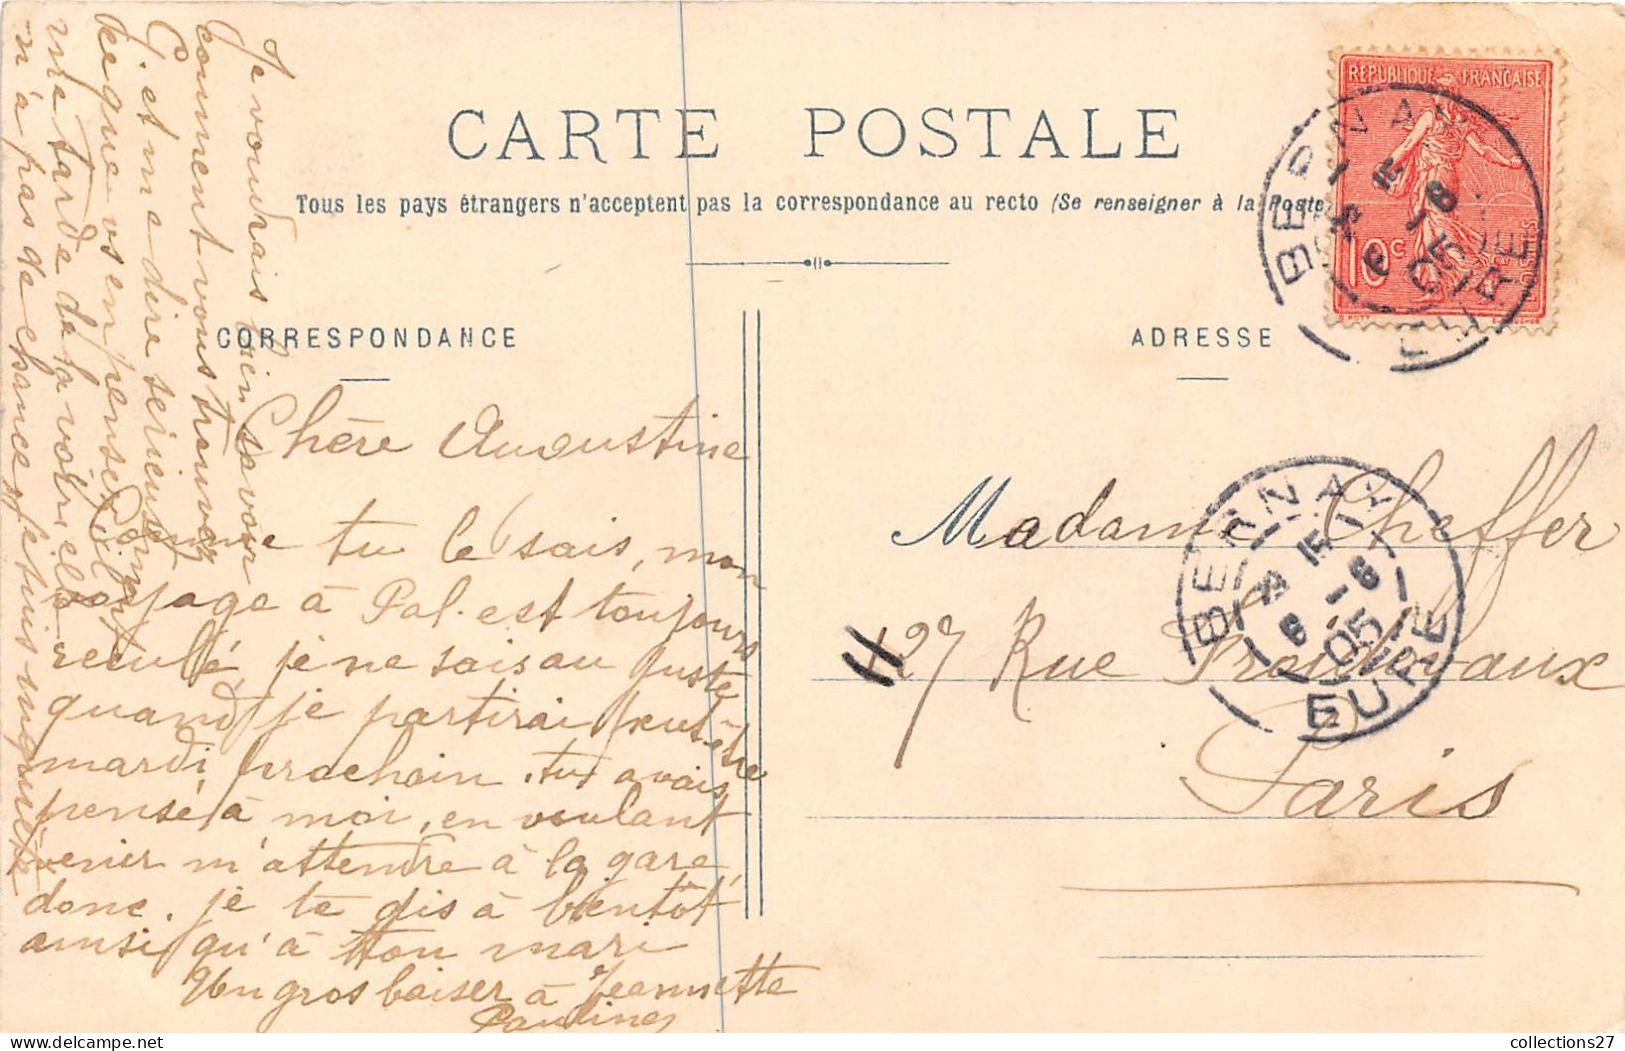 CARTE POSTALE
Tous les pays étrangers n'acceptent pas la correspondance au recto (Se renseigner à la Poste)
CORRESPONDANCE
ADRESSE
REPUBLIQUE FRANÇAISE
10c
BERNAY
6 -6
05
EURE
BERNAY
15
6 -6
05
EURE
Chère Augustine
Comme tu le sais, mon
voyage à Pal. est toujours
reculé, je ne sais au juste
quand je partirai peut-être
mardi prochain. tu avais
pensé à moi, en voulant
venir m'attendre à la gare,
donc. je te dis à bientôt
ainsi qu'à ton mari
Un gros baiser à Jeannette
Pauline
Je voudrais bien savoir
comment vous trouvez
G. et me dire sérieusement
ce que vs en pensez
me tarde de la voir elle
n'a pas de chance je suis inquiète
Madame Cheffer
127 Rue
Paris
collections27